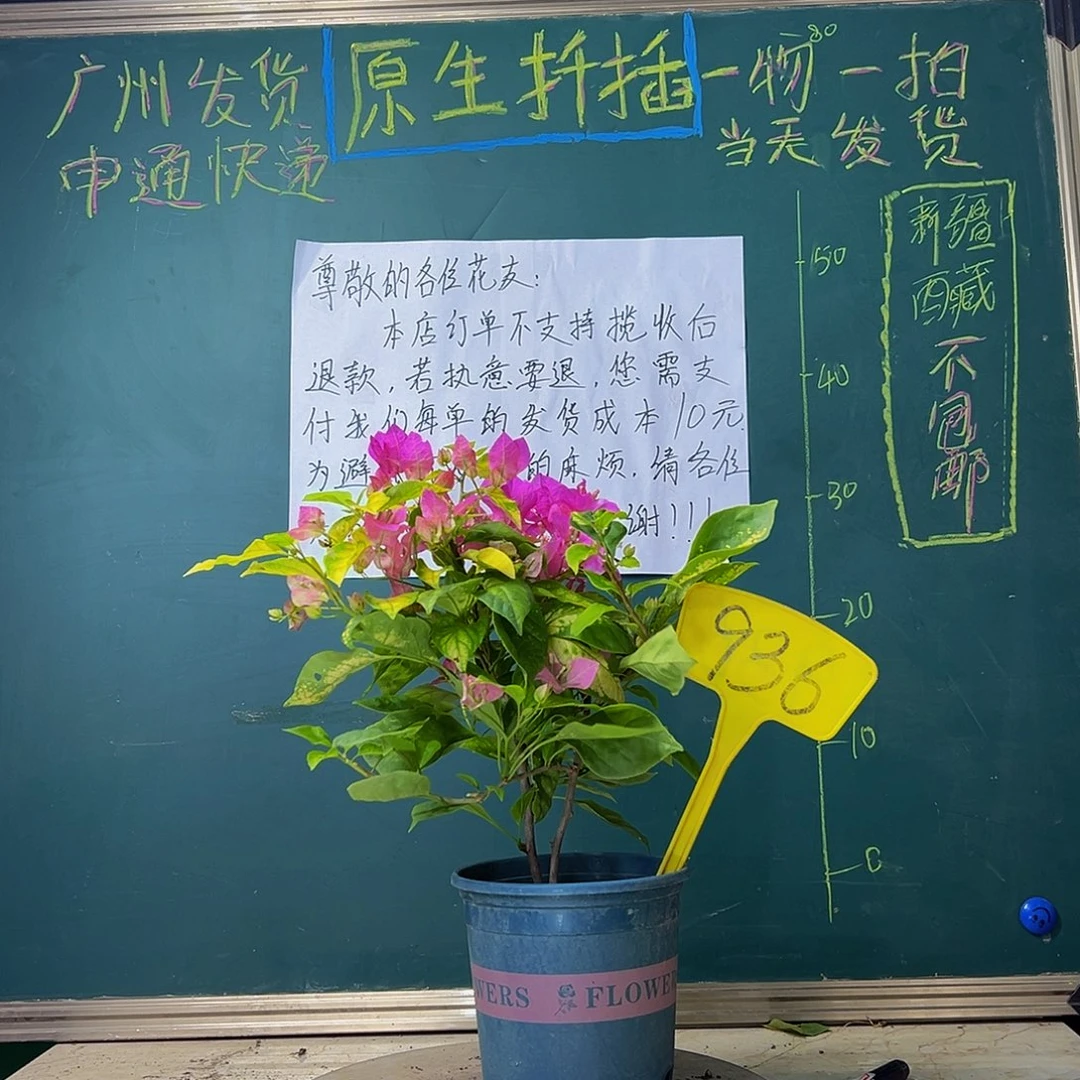 广州发货
申通快递
原生扦插
一物一拍
80
当天发货
新疆
西藏
不包邮
尊敬的各位花友:
本店订单不支持揽收后
退款,若执意要退,您需支
付我们每单的发货成本10元.
为避 的麻烦,请各位
谢!!!
50
40
30
20
10
0
936
WERS FLOWE